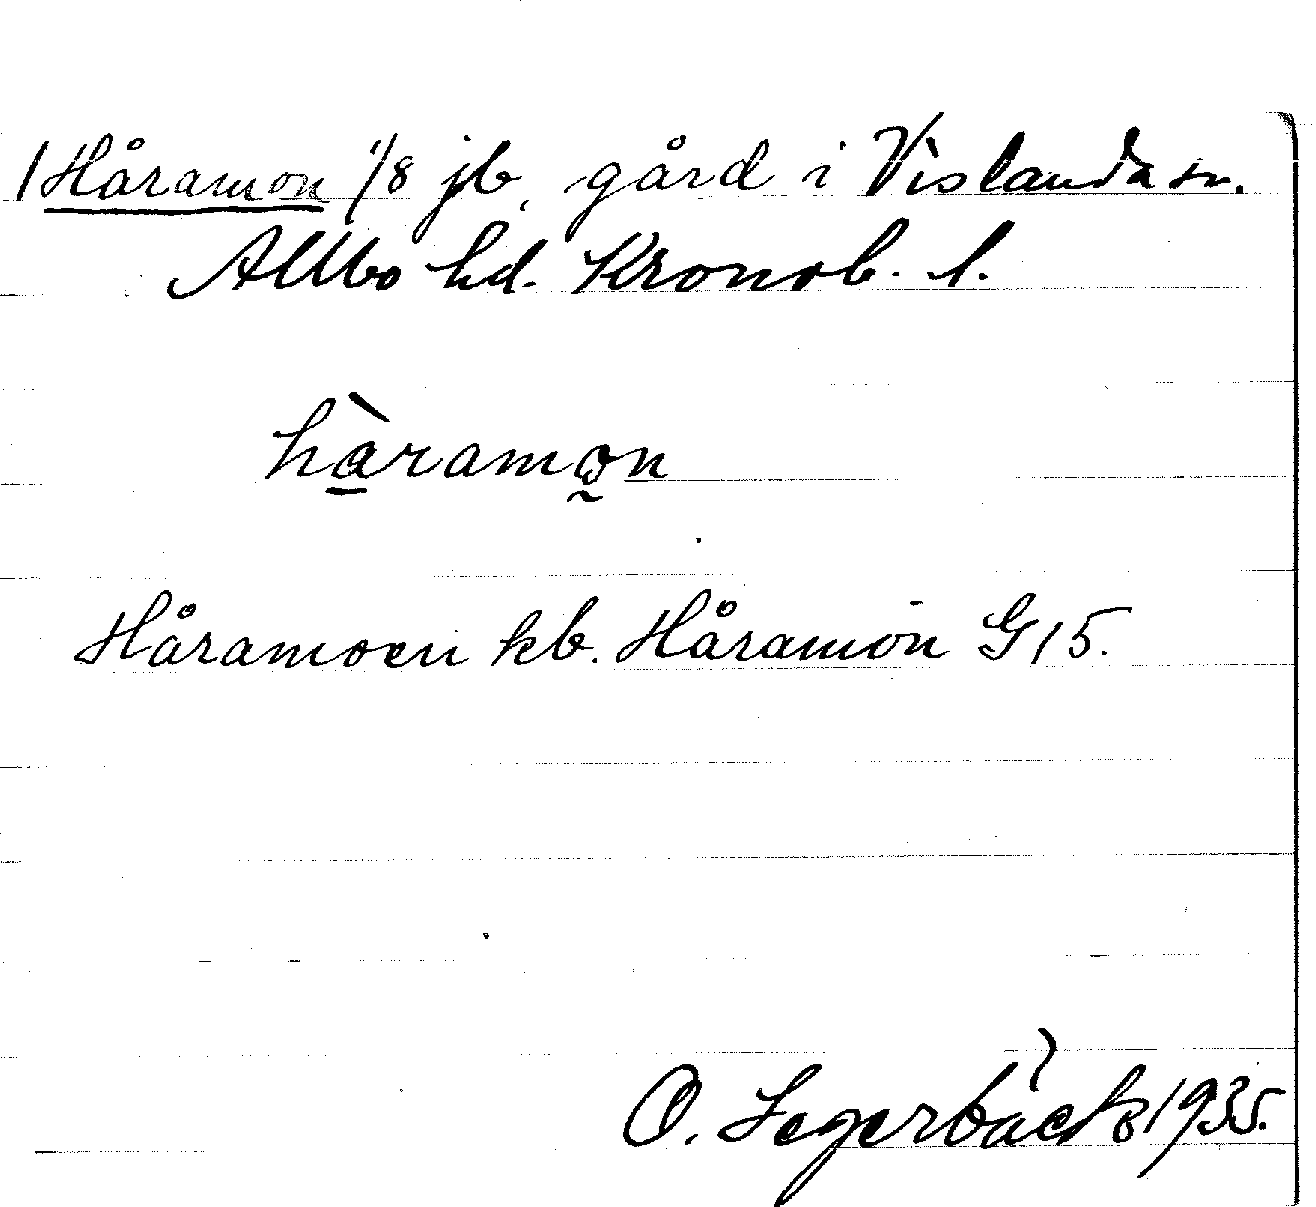 / Håramon 1/8 jb, gård i Vislanda sn.
Allbo hd. Kronob. l.
hàramon
Håramoen kb. Håramon G 15.
O. Segerbäck 1935.